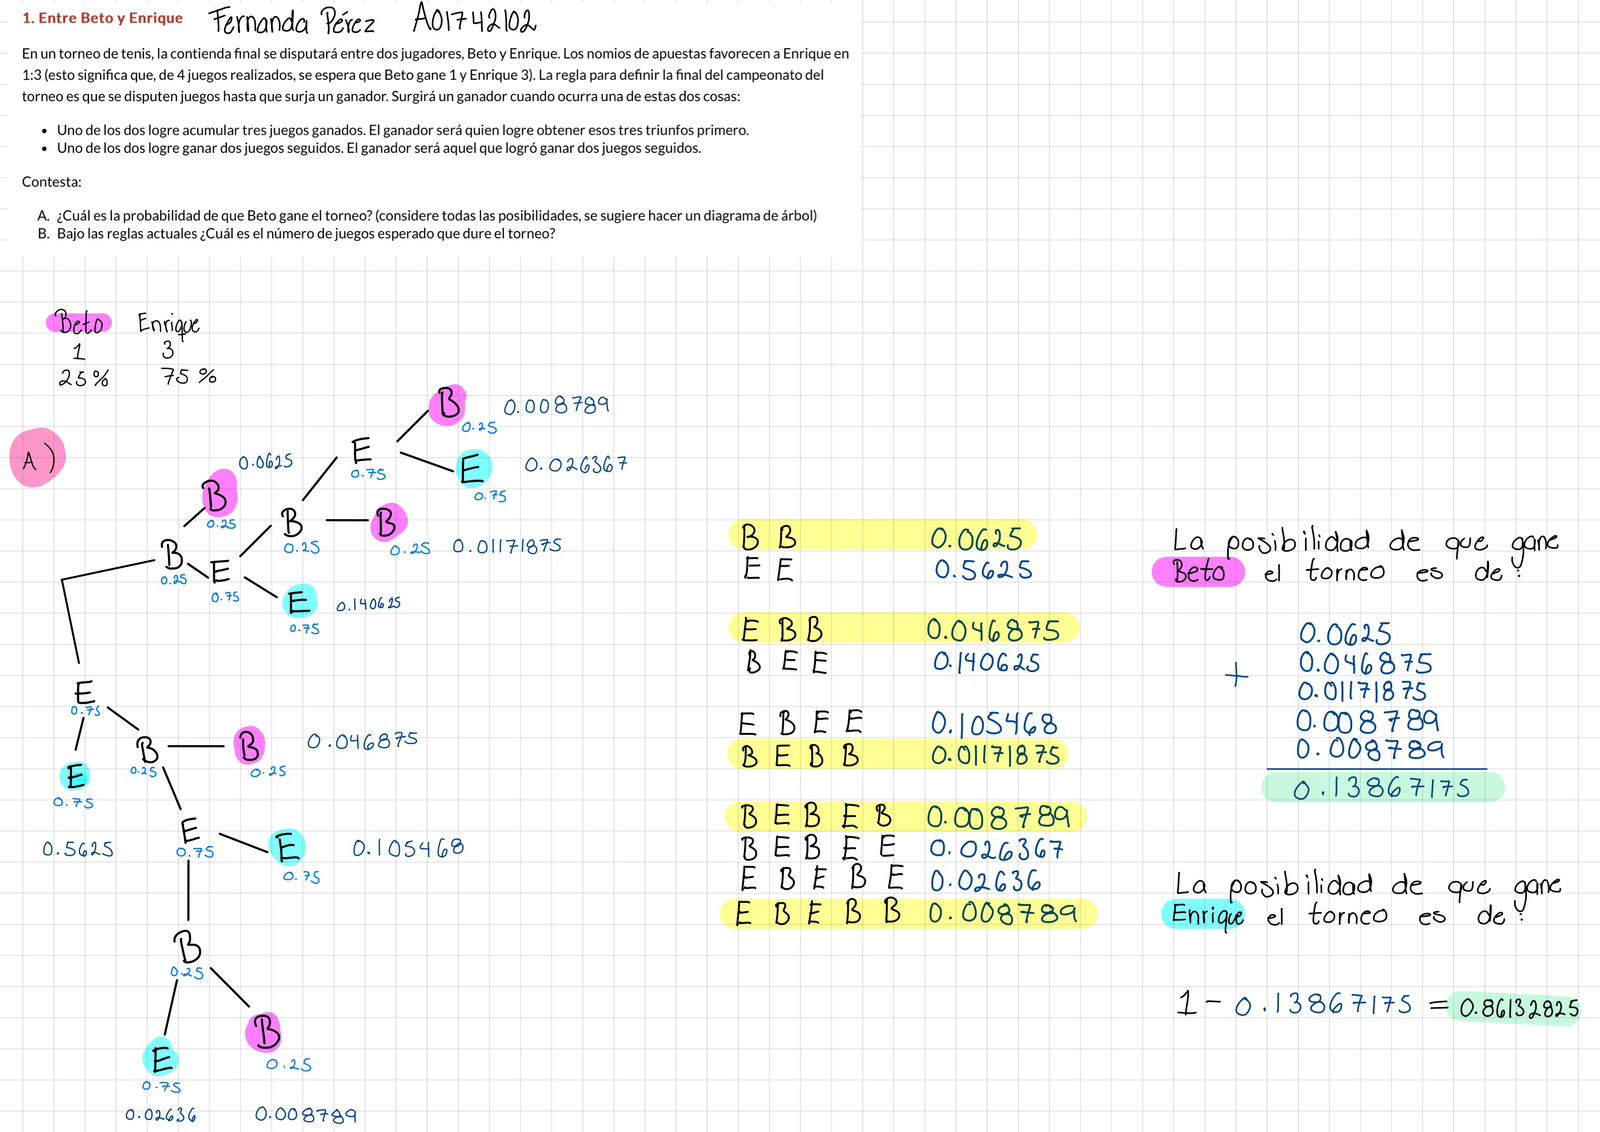 1. Entre Beto y Enrique
Fernanda Pérez A01742102
En un torneo de tenis, la contienda final se disputará entre dos jugadores, Beto y Enrique. Los nomios de apuestas favorecen a Enrique en
1:3 (esto significa que, de 4 juegos realizados, se espera que Beto gane 1 y Enrique 3). La regla para definir la final del campeonato del
torneo es que se disputen juegos hasta que surja un ganador. Surgirá un ganador cuando ocurra una de estas dos cosas:
• Uno de los dos logre acumular tres juegos ganados. El ganador será quien logre obtener esos tres triunfos primero.
• Uno de los dos logre ganar dos juegos seguidos. El ganador será aquel que logró ganar dos juegos seguidos.
Contesta:
A. ¿Cuál es la probabilidad de que Beto gane el torneo? (considere todas las posibilidades, se sugiere hacer un diagrama de árbol)
B. Bajo las reglas actuales ¿Cuál es el número de juegos esperado que dure el torneo?
Beto Enrique
1 3
25% 75%
A)
B 0.008789
0.25
E
0.75
E 0.026367
0.75
0.0625
B
0.25
B
0.25
B
0.25 0.01171875
B
0.25
E
0.75
E 0.140625
0.75
E
0.75
B
0.25
B 0.046875
0.25
E
0.75
0.5625
E
0.75
E 0.105468
0.75
B
0.25
B
0.25
E
0.75
0.02636 0.008789
B B 0.0625
E E 0.5625
E B B 0.046875
B E E 0.140625
E B E E 0.105468
B E B B 0.01171875
B E B E B 0.008789
B E B E E 0.026367
E B E B E 0.02636
E B E B B 0.008789
La posibilidad de que gane
Beto el torneo es de:
0.0625
0.046875
+
0.01171875
0.008789
0.008789
0.13867175
La posibilidad de que gane
Enrique el torneo es de:
1 - 0.13867175 = 0.86132825